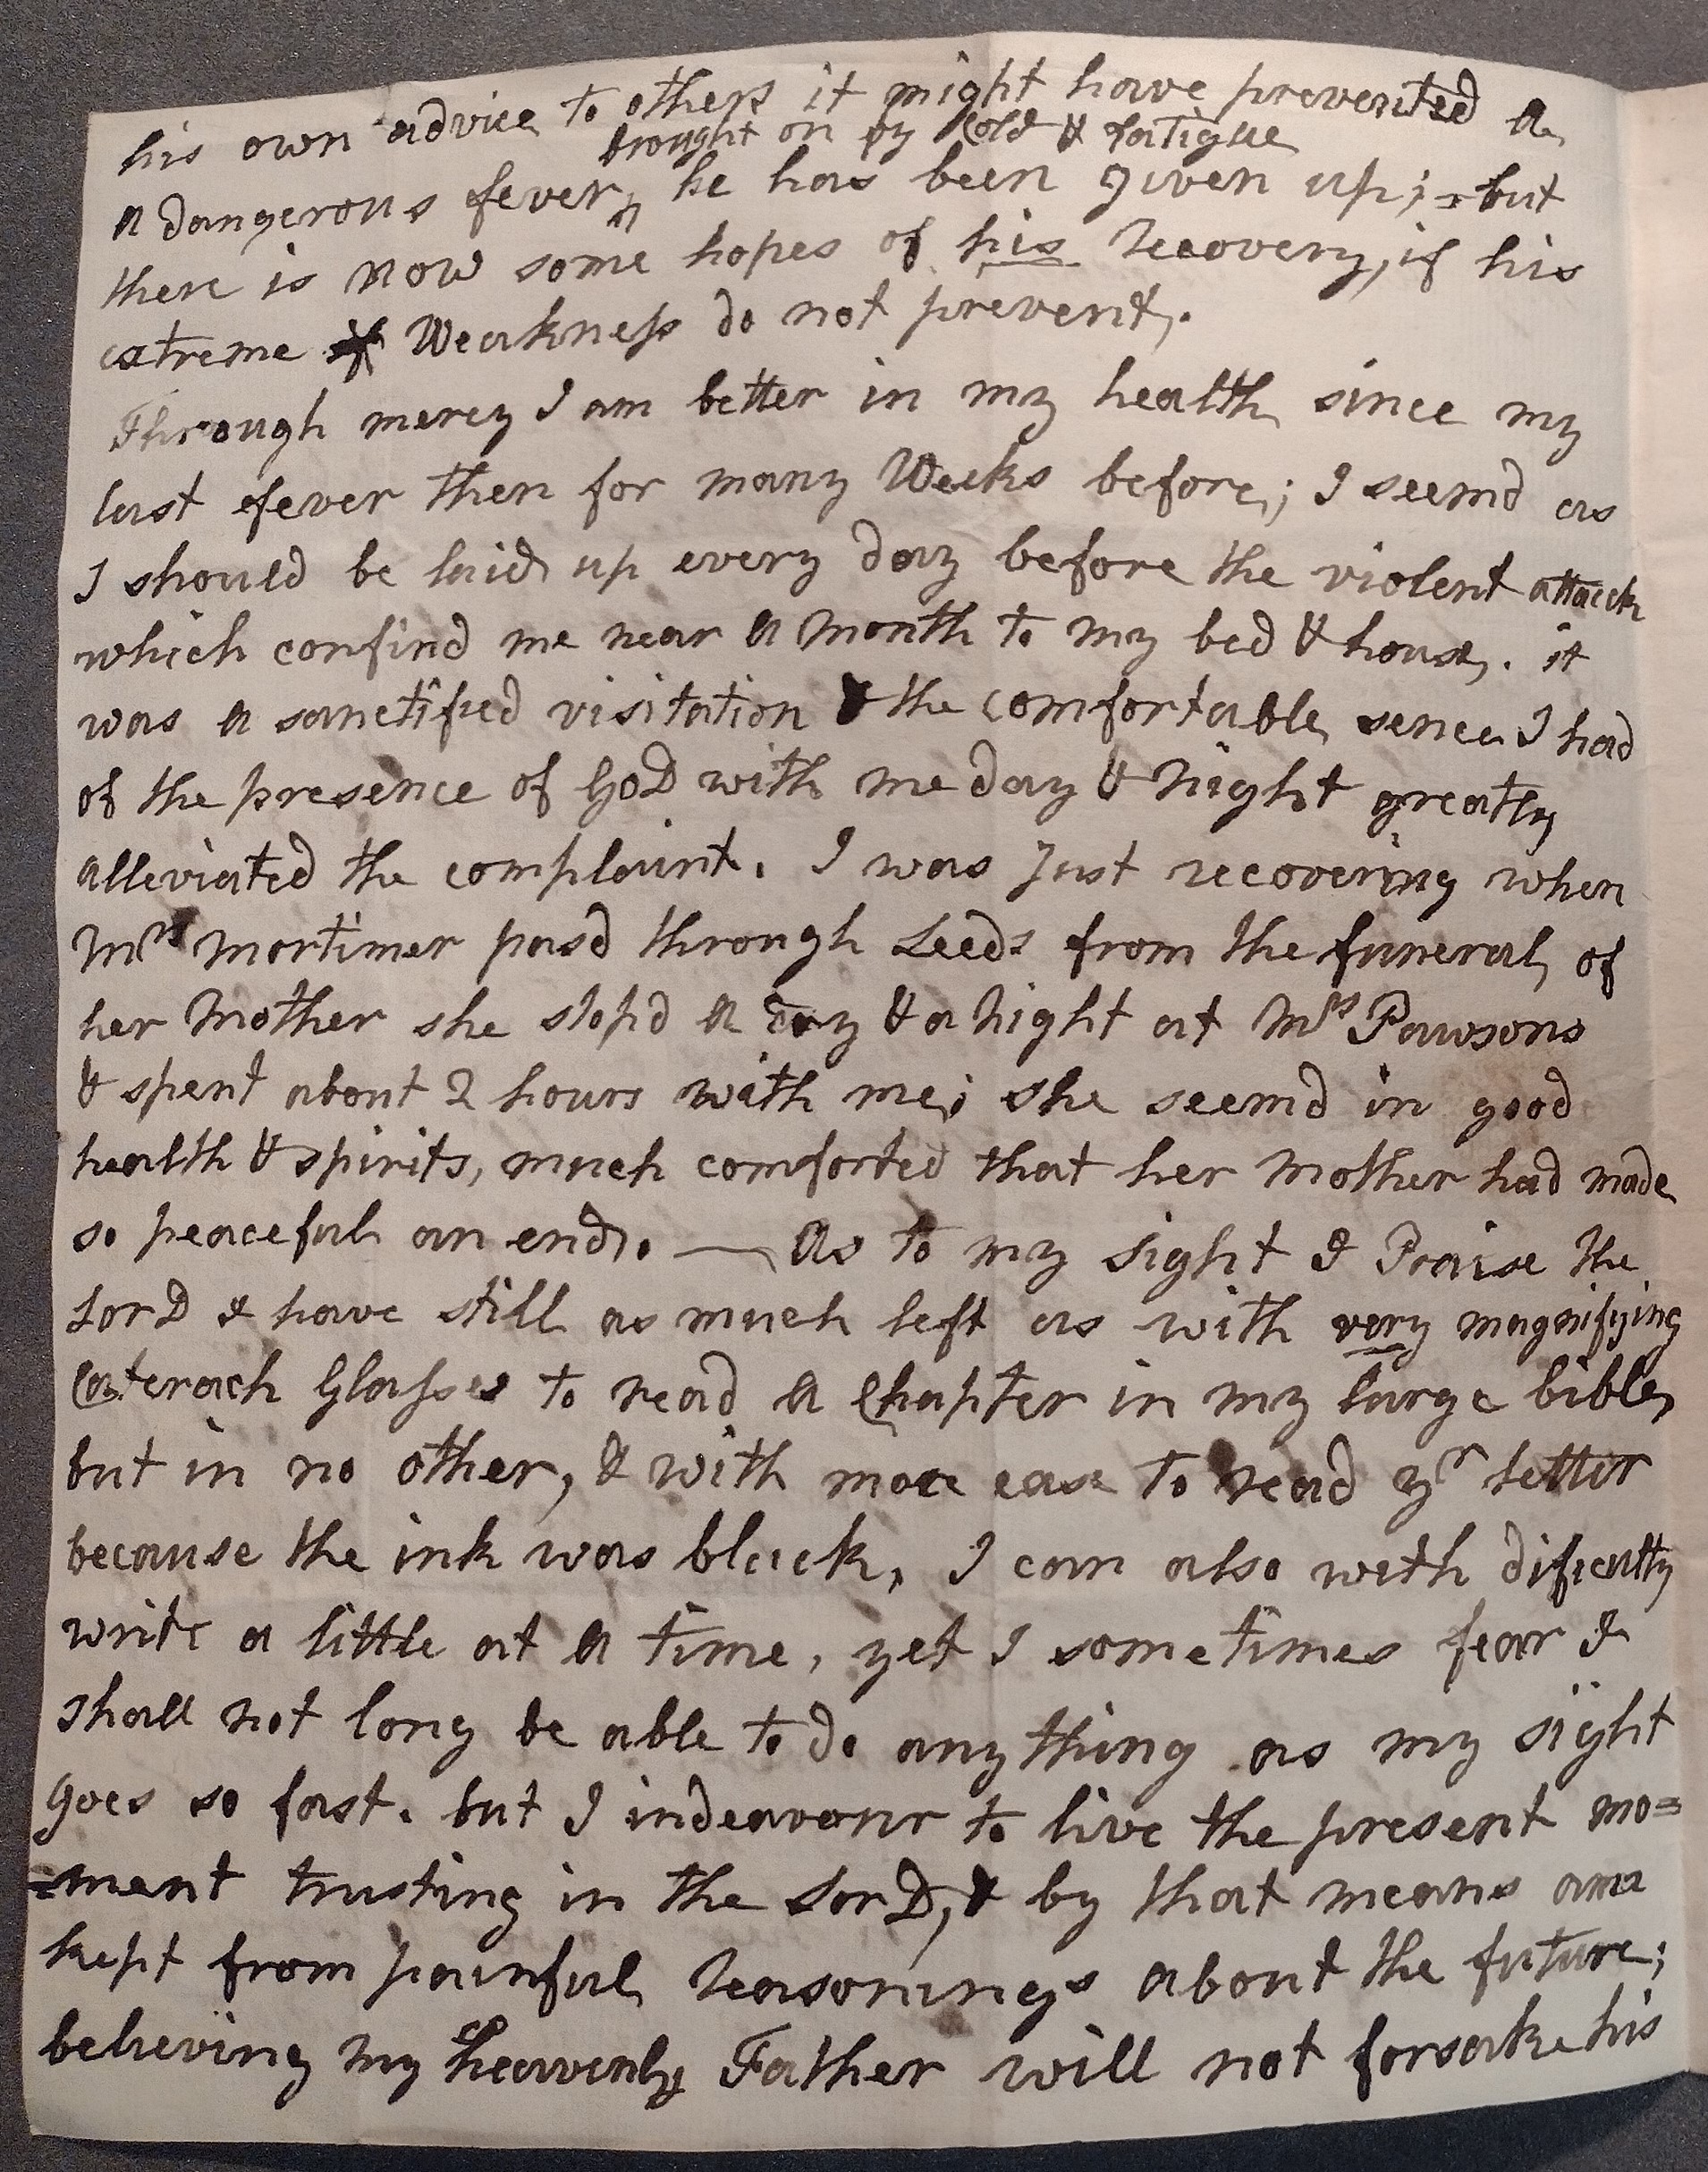 his own advice to others it might have prevented a
brought on by Cold & fatigue
a dangerous fever, he has been given up; but
there is now some hopes of his recovery, if his
extreme Weakness do not prevent.
Through mercy I am better in my health since my
last fever then for many Weeks before; I seemd as
I should be laid up every day before the violent attack
which confind me near a Month to my bed & house. it
was a sanctified visitation & the comfortable sence I had
of the presence of GoD with me day & Night greatly
alleviated the complaint. I was Just recovering when
Mrs Mortimer pasd through Leeds from the funeral of
her Mother she stopd a day & a Night at Mrs Pawsons
& spent about 2 hours with me; she seemd in good
health & spirits, much comforted that her Mother had made
so peaceful an end. — As to my Sight I Praise the
LorD I have still as much left as with very magnifying
Caterach Glasses to read a Chapter in my large bible,
but in no other, & with more ease to read yr letter
because the ink was black, I can also with dificulty
write a little at a time, yet I sometimes fear I
shall not long be able to do any thing as my sight
goes so fast. but I indeavour to live the present mo=
=ment trusting in the LorD, & by that means am
kept from painful Reasonings about the future;
believing my heavenly Father will not forsake his